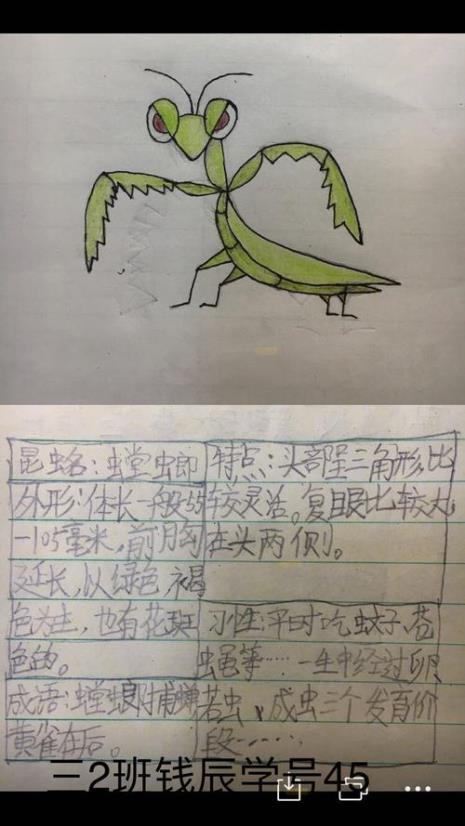 昆虫名:螳螂
外形:体长一般55
-105毫米,前胸
延长,以绿色、褐
色为主,也有花斑
色的。
成语:螳螂捕蝉
黄雀在后。
特点:头部呈三角形,比
较灵活。复眼比较大,
在头两侧。
习性:平时吃蚊子、苍
蝇等……一生中经过卵、
若虫、成虫三个发育阶
段……
三2班钱辰学号45